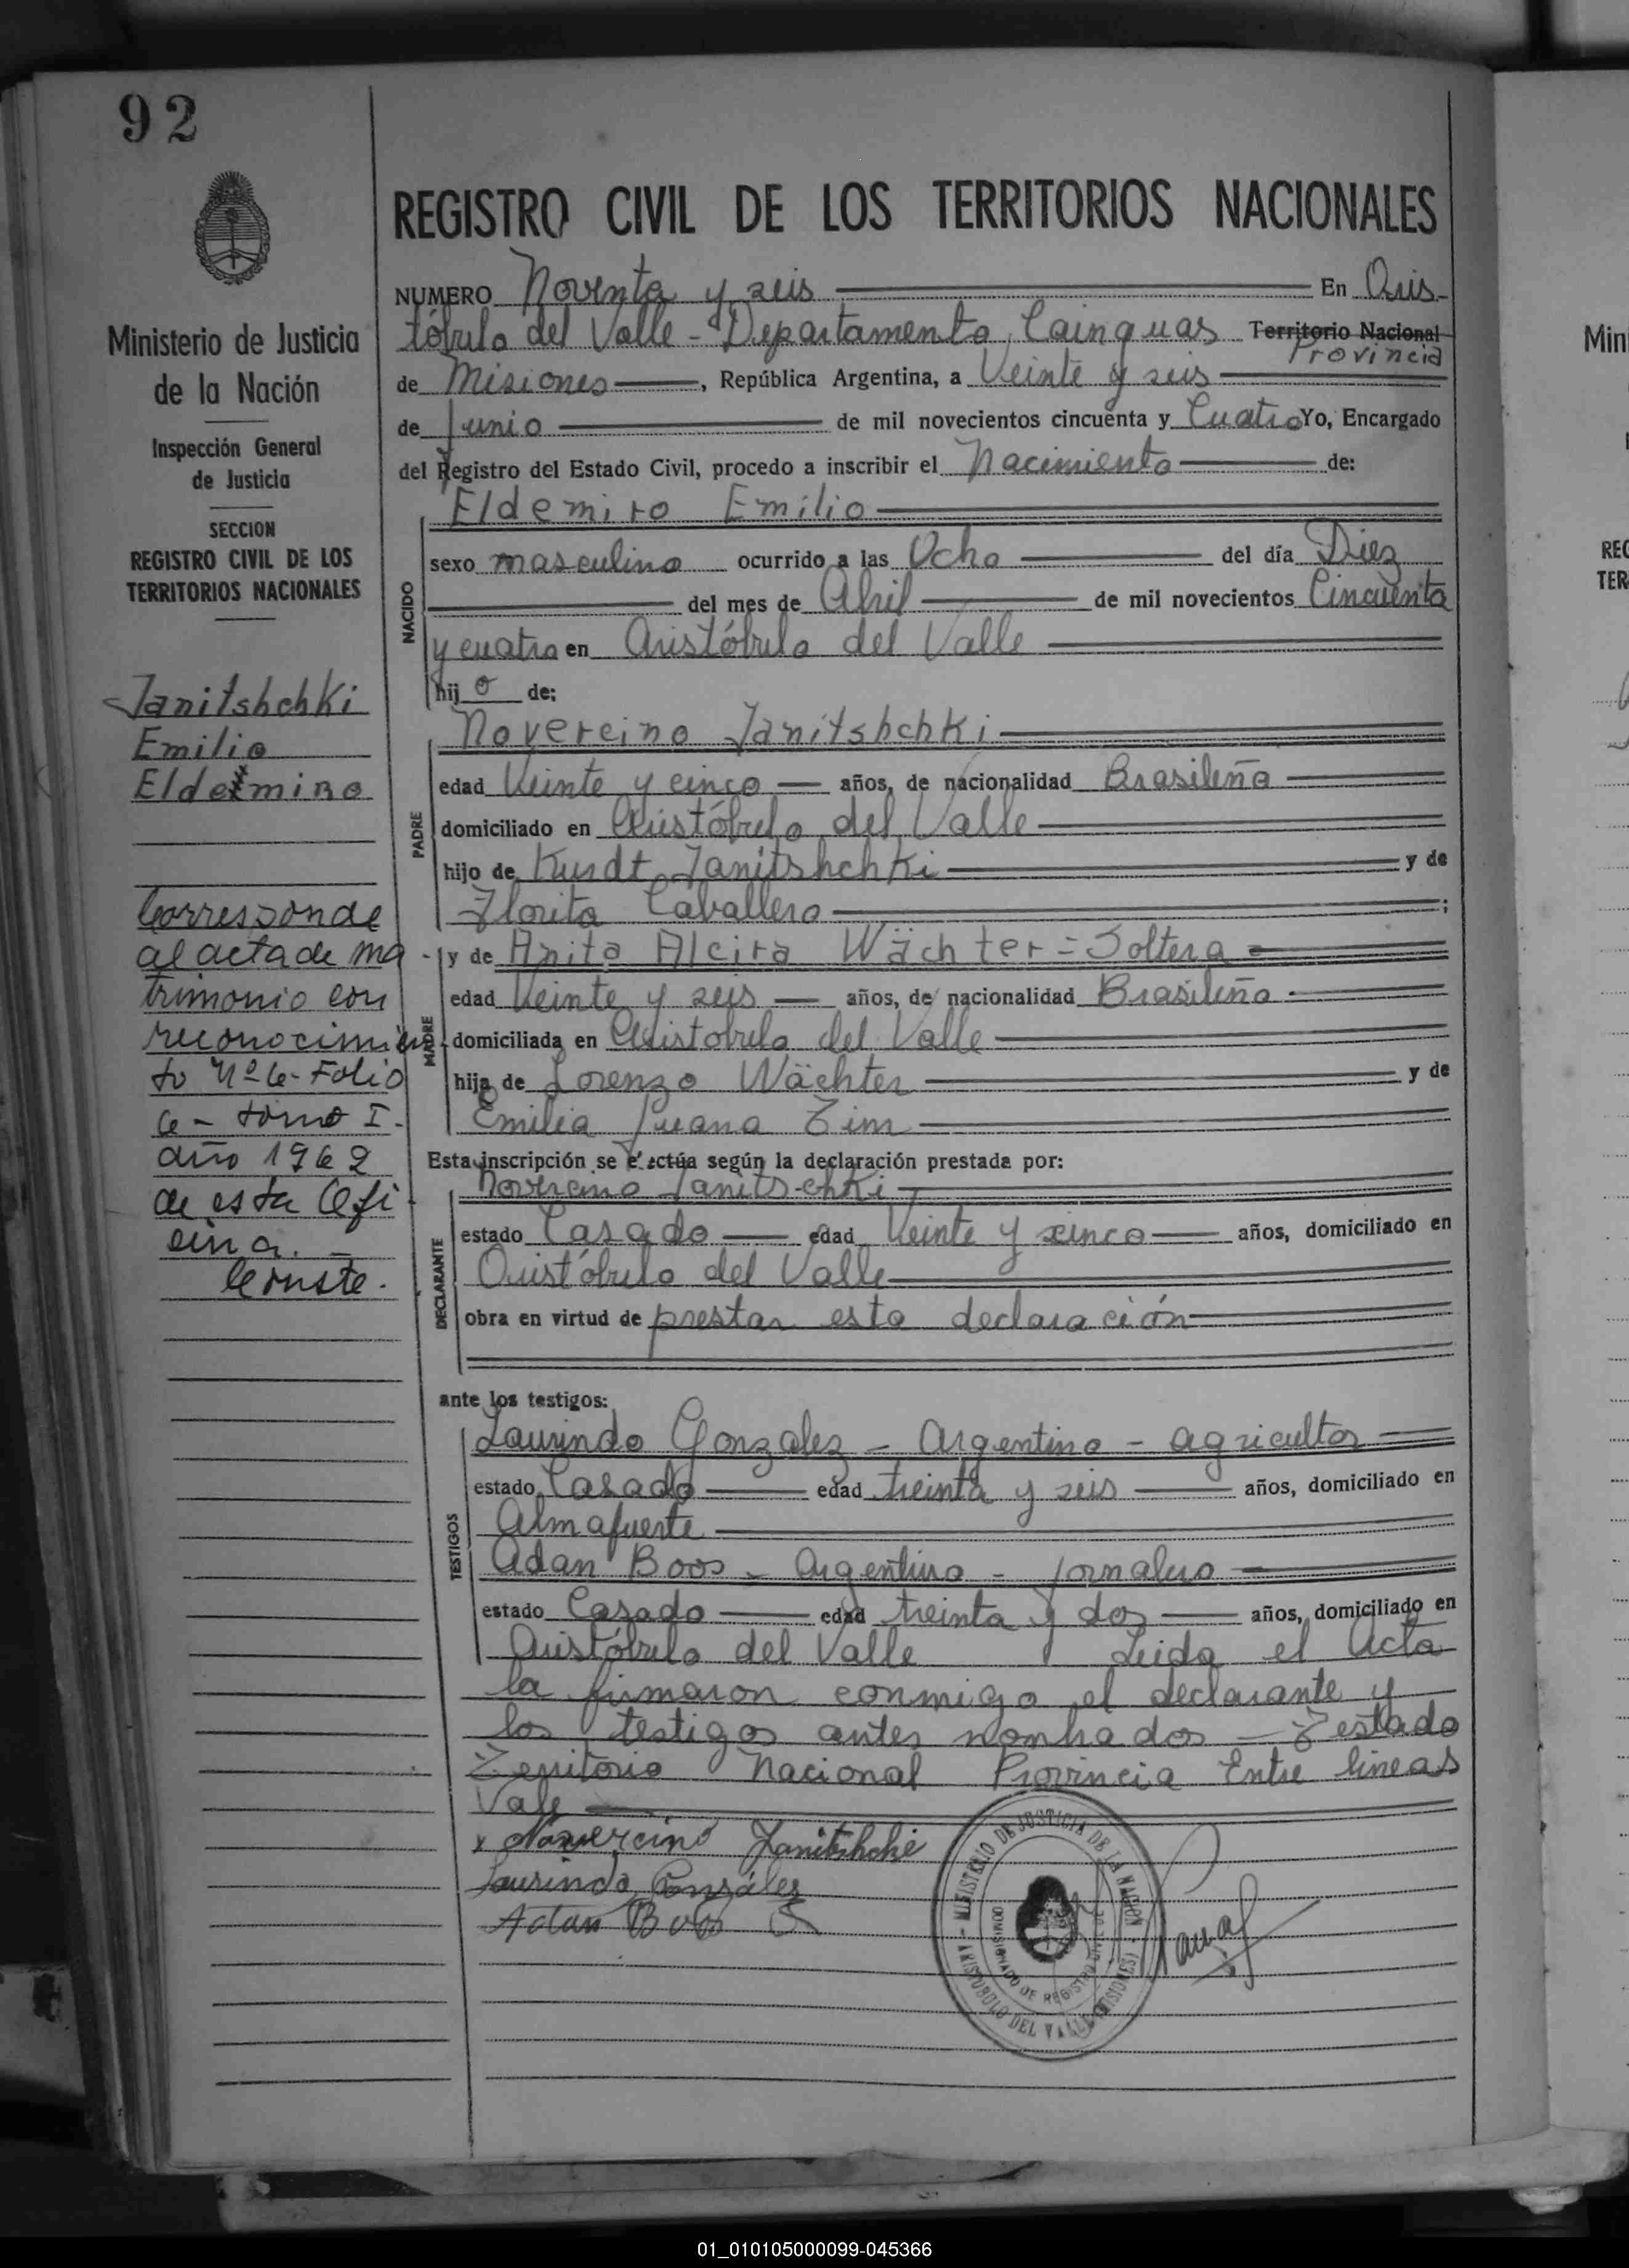 92
REGISTRO CIVIL DE LOS TERRITORIOS NACIONALES
Ministerio de Justicia
de la Nación
Inspección General
de Justicia
SECCION
REGISTRO CIVIL DE LOS
TERRITORIOS NACIONALES
Janitshchki
Emilio
Eldemiro
Corresponde
al acta de ma
trimonio con
reconocimien
to Nº 6- Folio
6 - tomo I.
año 1962
de esta Ofi
cina. -
Conste.
NUMERO Noventa y seis En Aris-
tóbulo del Valle - Departamento Cainguas Territorio Nacional
Provincia
de Misiones, República Argentina, a Veinte y seis
de Junio de mil novecientos cincuenta y Cuatro Yo, Encargado
del Registro del Estado Civil, procedo a inscribir el Nacimiento de:
Eldemiro Emilio
NACIDO
sexo masculino ocurrido a las Ocho del día Diez
del mes de Abril de mil novecientos Cincuenta
y cuatro en Aristóbulo del Valle
hijo de:
Novercino Janitshchki
PADRE
edad Veinte y cinco años, de nacionalidad Brasileña
domiciliado en Aristóbulo del Valle
hijo de Kurdt Janitshchki y de
Florita Caballero;
y de Anita Alcira Wächter = Soltera =
MADRE
edad Veinte y seis años, de nacionalidad Brasileña
domiciliada en Aristobulo del Valle
hija de Lorenzo Wächter y de
Emilia Juana Zim
Esta inscripción se efectúa según la declaración prestada por:
Novercino Janits-chki
DECLARANTE
estado Casado edad Veinte y cinco años, domiciliado en
Aristóbulo del Valle
obra en virtud de prestar esta declaración
ante los testigos:
Laurindo Gonzalez - Argentino - agricultor
TESTIGOS
estado Casado edad treinta y seis años, domiciliado en
Almafuerte
Adan Boos - Argentino - Jornalero
estado Casado edad treinta y dos años, domiciliado en
Aristóbulo del Valle Leida el Acta
la firmaron conmigo el declarante y
los testigos antes nombrados - Testado
Territorio Nacional Provincia Entre lineas
Vale
x Novercino Janitshchki
Laurindo Gonzáles
Adan Boos
MINISTERIO DE JUSTICIA DE LA NACION
ARISTOBULO DEL VALLE (MISIONES)
Min
REG
TER
01_010105000099-045366